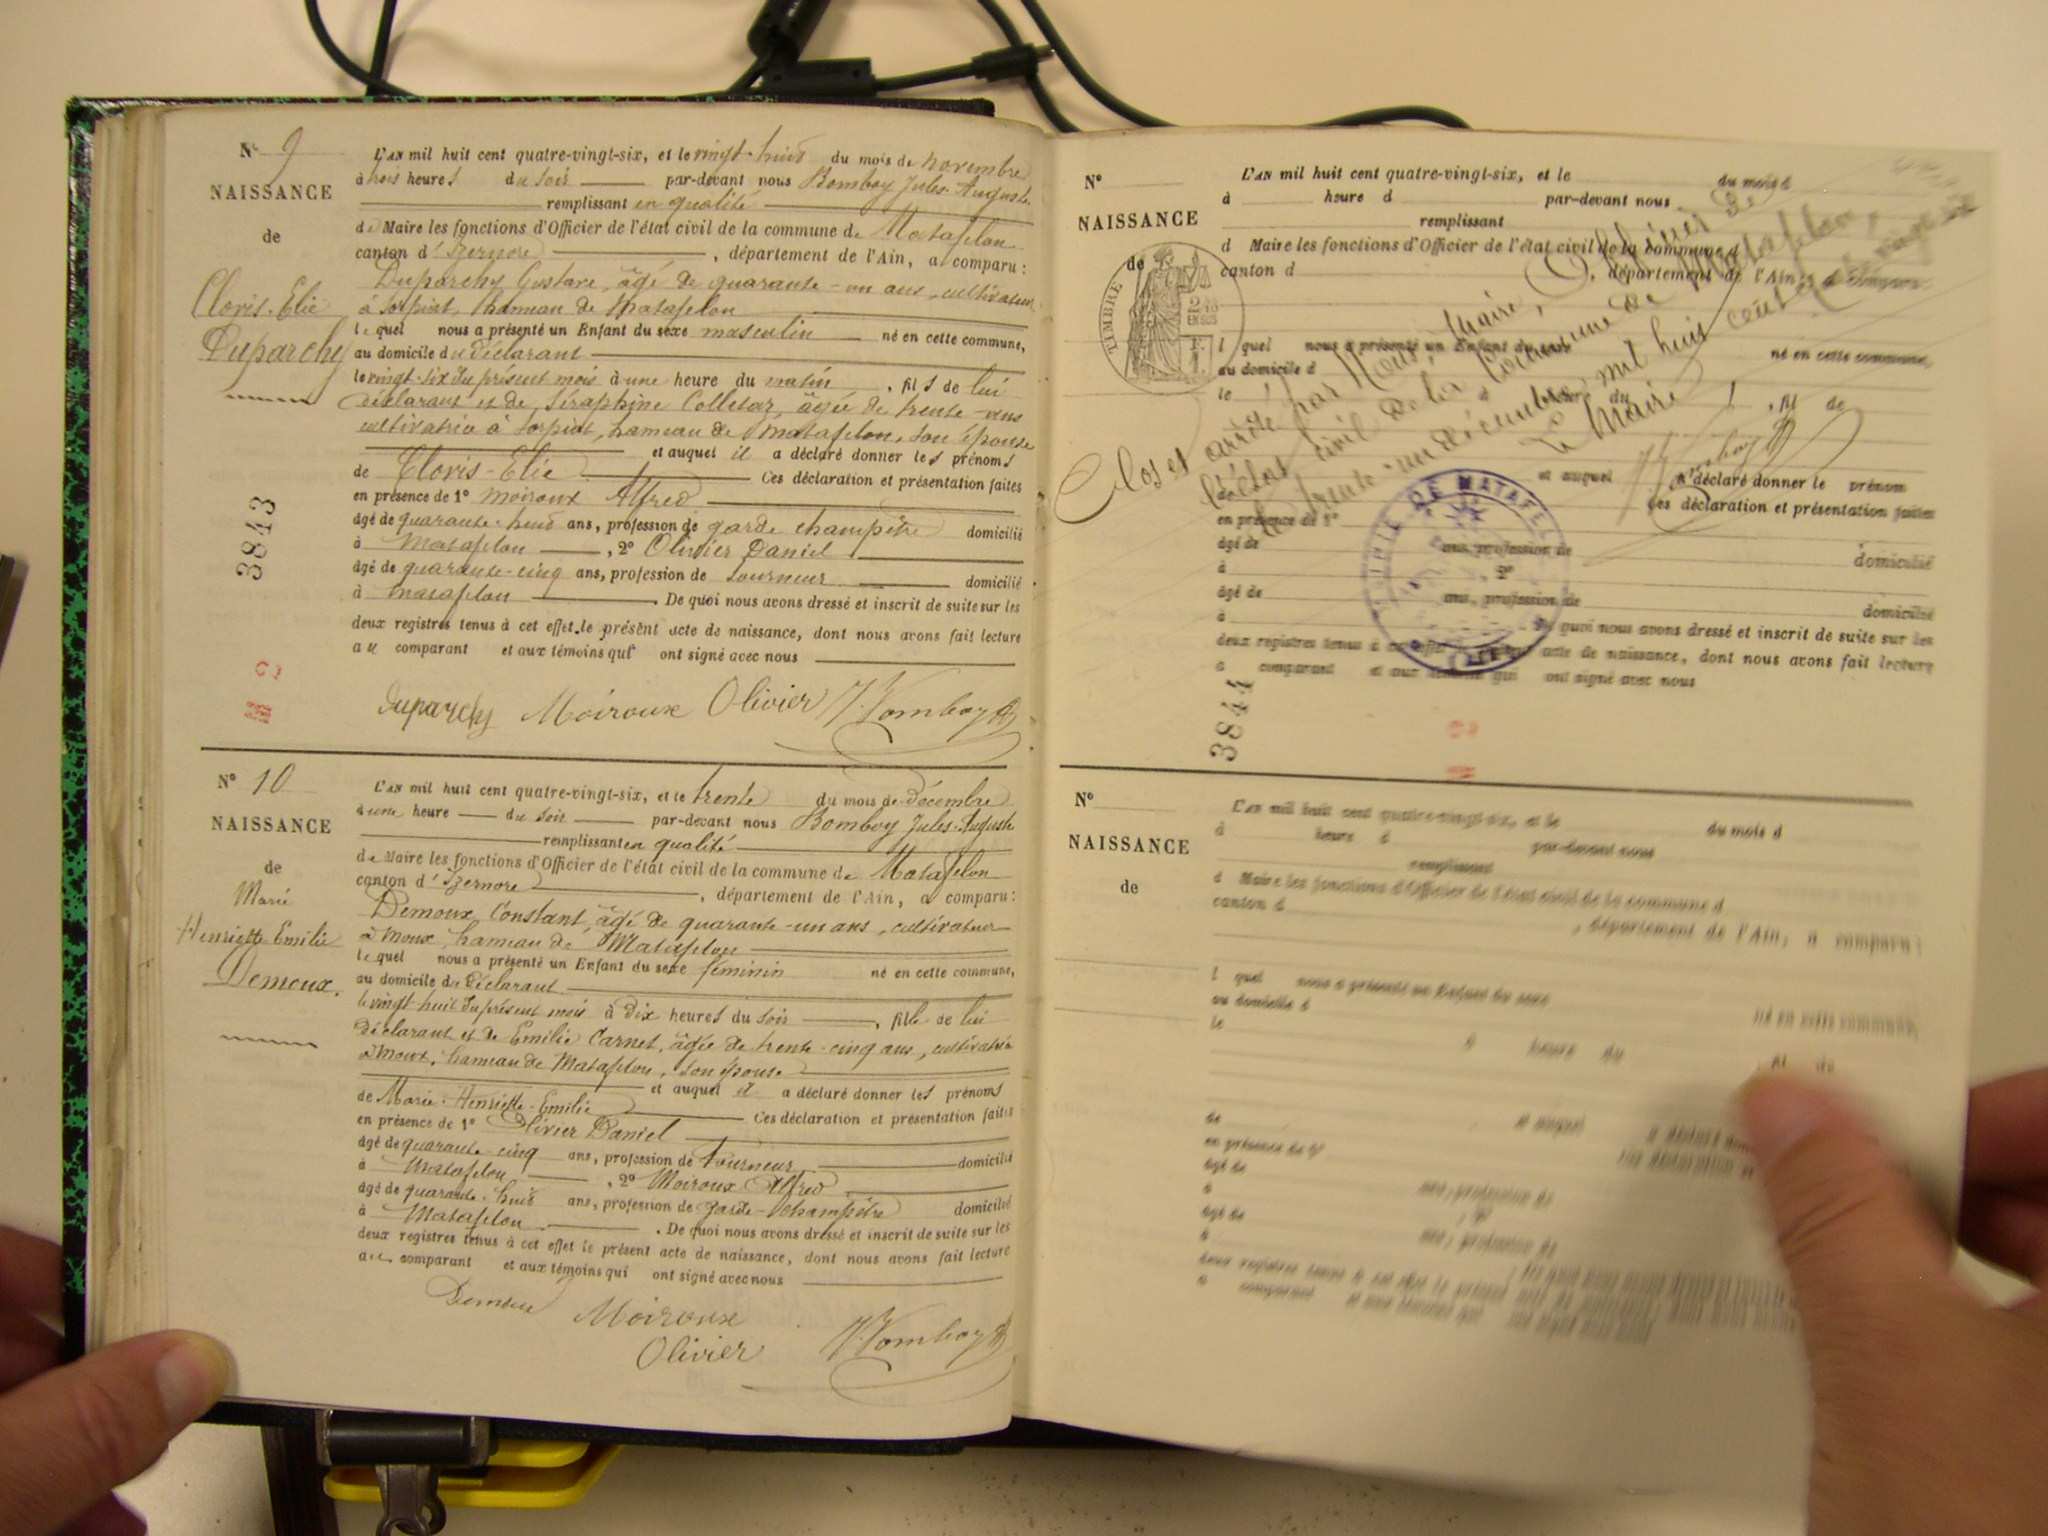 N° 9
NAISSANCE
de
Cloris-Elie
Duparchy
3843
L'AN mil huit cent quatre-vingt-six, et le vingt-huit du mois de novembre
à trois heures du soir par-devant nous Bomboy Jules-Auguste
remplissant en qualité
de Maire les fonctions d'Officier de l'état civil de la commune de Matafelon
canton d'Izernore, département de l'Ain, a comparu:
Duparchy Gustave, âgé de quarante-un ans, cultivateur
à Sorpiat, hameau de Matafelon
lequel nous a présenté un Enfant du sexe masculin né en cette commune,
au domicile du déclarant
le vingt-six du présent mois à une heure du matin, fils de lui
déclarant et de Séraphine Colletaz, âgée de trente-ans
cultivatrice à Sorpiat, hameau de Matafelon, son épouse
et auquel il a déclaré donner les prénoms
de Cloris-Elie Ces déclaration et présentation faites
en présence de 1° Moiroux Alfred
âgé de quarante-huit ans, profession de garde champêtre domicilié
à Matafelon, 2° Olivier Daniel
âgé de quarante-cinq ans, profession de tourneur domicilié
à Matafelon. De quoi nous avons dressé et inscrit de suite sur les
deux registres tenus à cet effet le présent acte de naissance, dont nous avons fait lecture
au comparant et aux témoins qui ont signé avec nous
Duparchy Moiroux Olivier J. Bomboy
N° 10
NAISSANCE
de
Marie
Henriette Emilie
Demoux.
L'AN mil huit cent quatre-vingt-six, et le trente du mois de décembre
à une heure du soir par-devant nous Bomboy Jules-Auguste
remplissant en qualité
de Maire les fonctions d'Officier de l'état civil de la commune de Matafelon
canton d'Izernore, département de l'Ain, a comparu:
Demoux Constant, âgé de quarante-un ans, cultivateur
à Moux, hameau de Matafelon
lequel nous a présenté un Enfant du sexe féminin né en cette commune,
au domicile du déclarant
le vingt-huit du présent mois à dix heures du soir, fille de lui
déclarant et de Emilie Carnet, âgée de trente-cinq ans, cultivatrice
à Moux, hameau de Matafelon, son épouse
et auquel il a déclaré donner les prénoms
de Marie-Henriette-Emilie Ces déclaration et présentation faites
en présence de 1° Olivier Daniel
âgé de quarante-cinq ans, profession de tourneur domicilié
à Matafelon, 2° Moiroux Alfred
âgé de quarante-huit ans, profession de garde-champêtre domicilié
à Matafelon. De quoi nous avons dressé et inscrit de suite sur les
deux registres tenus à cet effet le présent acte de naissance, dont nous avons fait lecture
au comparant et aux témoins qui ont signé avec nous
Demoux Moiroux
Olivier J. Bomboy
N°
NAISSANCE
de
TIMBRE
3844
L'AN mil huit cent quatre-vingt-six, et le du mois d
à heure d par-devant nous
remplissant
d Maire les fonctions d'Officier de l'état civil de la commune d
canton d, département de l'Ain, a comparu:
l quel nous a présenté un Enfant du sexe né en cette commune,
au domicile d
le à heure du, fil de
et auquel a déclaré donner le prénom
de Ces déclaration et présentation faites
en présence de 1°
âgé de ans, profession de domicilié
à, 2°
âgé de ans, profession de domicilié
à De quoi nous avons dressé et inscrit de suite sur les
deux registres tenus à cet effet le présent acte de naissance, dont nous avons fait lecture
a comparant et aux témoins qui ont signé avec nous
Clos et arrêté par Nous, Maire, Officier de
l'état civil de la Commune de Matafelon,
le trente-un décembre mil huit cent quatre vingt six
Le Maire
J. Bomboy
MAIRIE DE MATAFELON
N°
NAISSANCE
de
L'AN mil huit cent quatre-vingt-six, et le du mois d
à heure d par-devant nous
remplissant
d Maire les fonctions d'Officier de l'état civil de la commune d
canton d, département de l'Ain, a comparu:
l quel nous a présenté un Enfant du sexe
au domicile d né en cette commune,
le à heure du, fil de
et auquel a déclaré
de Ces déclaration et
en présence de 1°
âgé de ans, profession de
à, 2°
âgé de ans, profession de
à